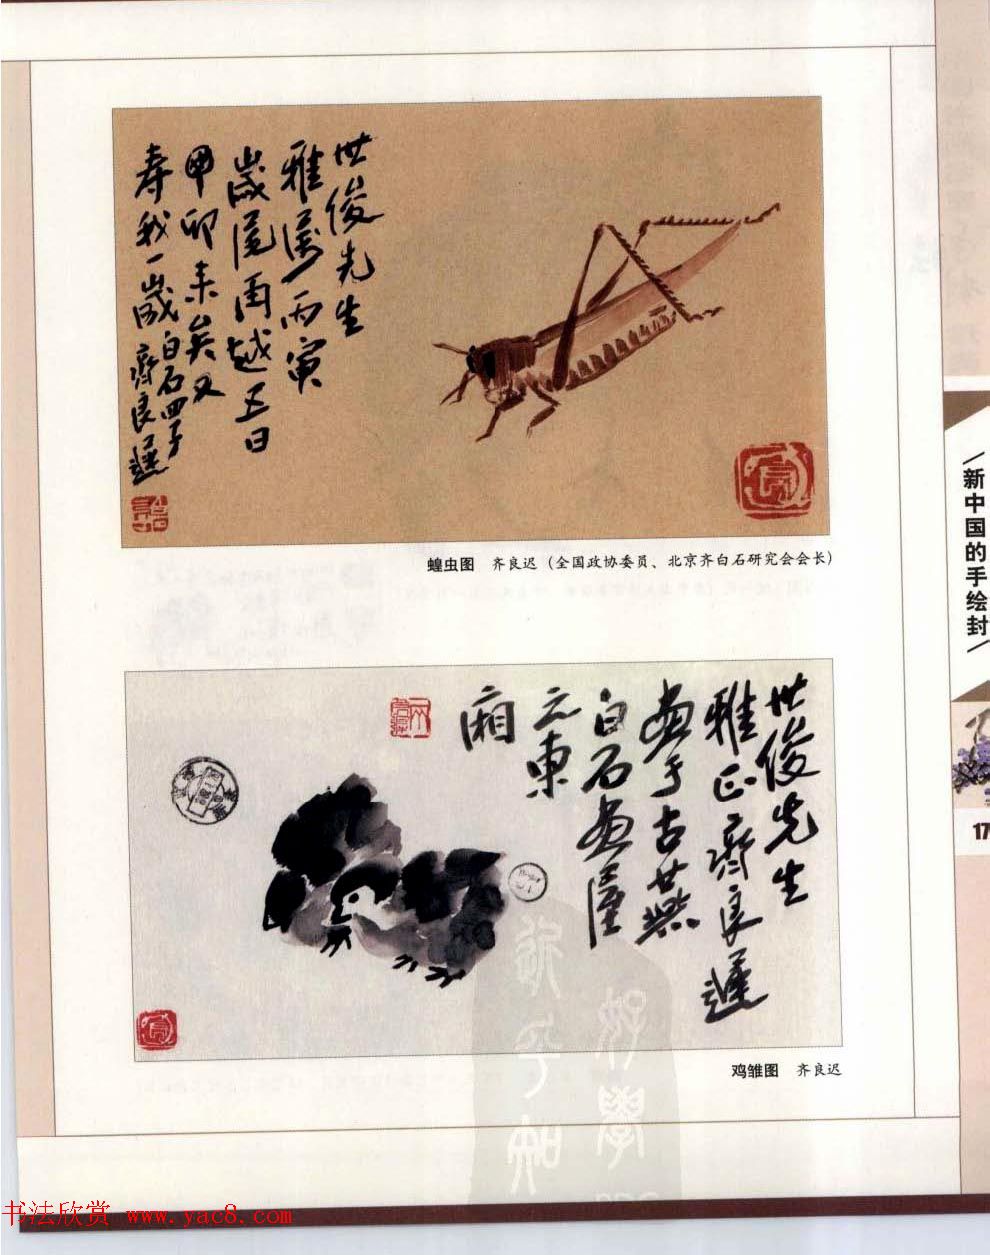 世俊先生
雅属丙寅
歳尾再越五日
甲卯来矣又
寿我一歳
白石四子
齊良遲
蝗虫图 齐良迟（全国政协委员、北京齐白石研究会会长）
世俊先生
雅正齊良遲
画于古燕
白石画屋
之東
廂
鸡雏图 齐良迟
新中国的手绘封
17
书法欣赏 www.yac8.com